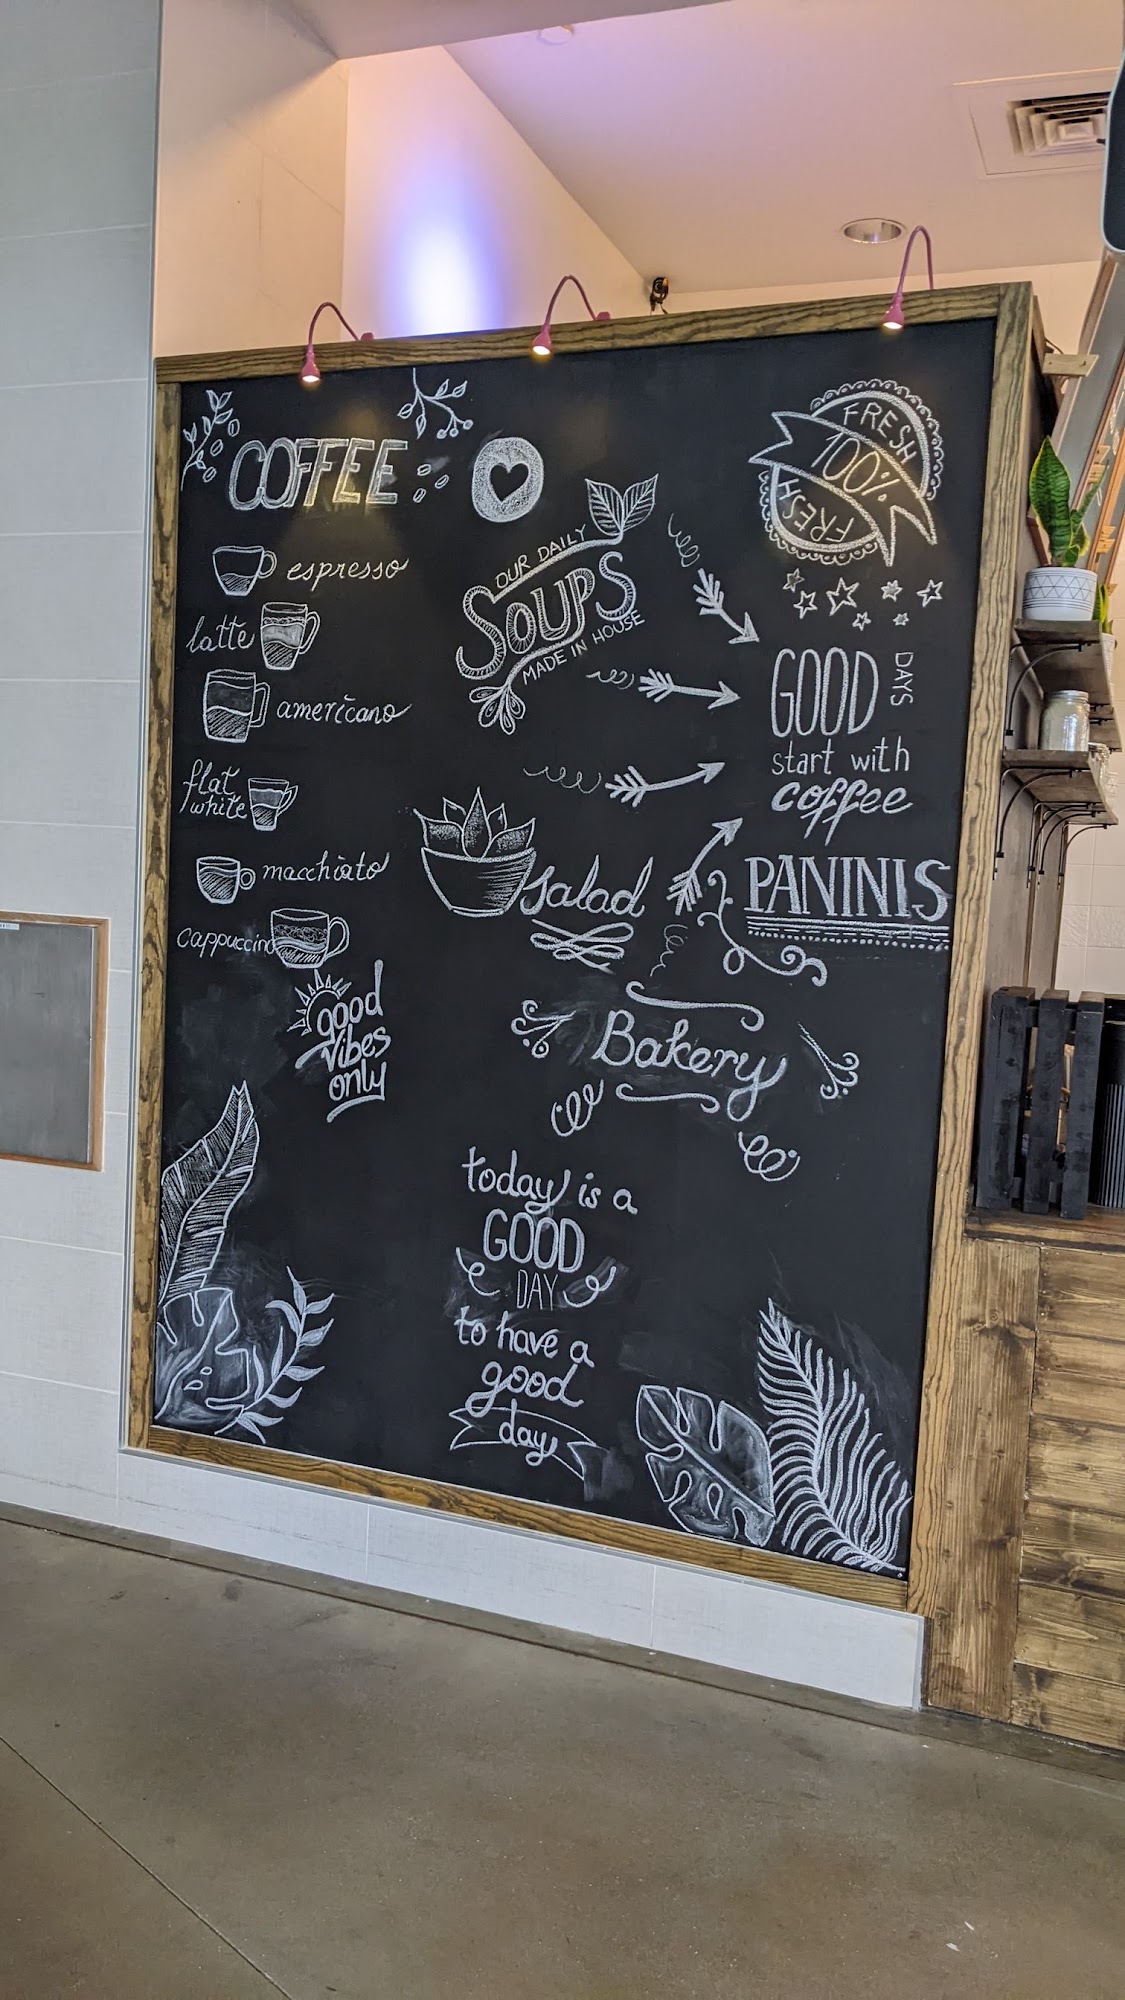 COFFEE
espresso
latte
americano
flat
white
macchiato
cappuccino
good
vibes
only
OUR DAILY
SOUPS
MADE IN HOUSE
FRESH
100%
FRESH
GOOD
DAYS
start with
coffee
salad
PANINIS
Bakery
today is a
GOOD
DAY
to have a
good
day